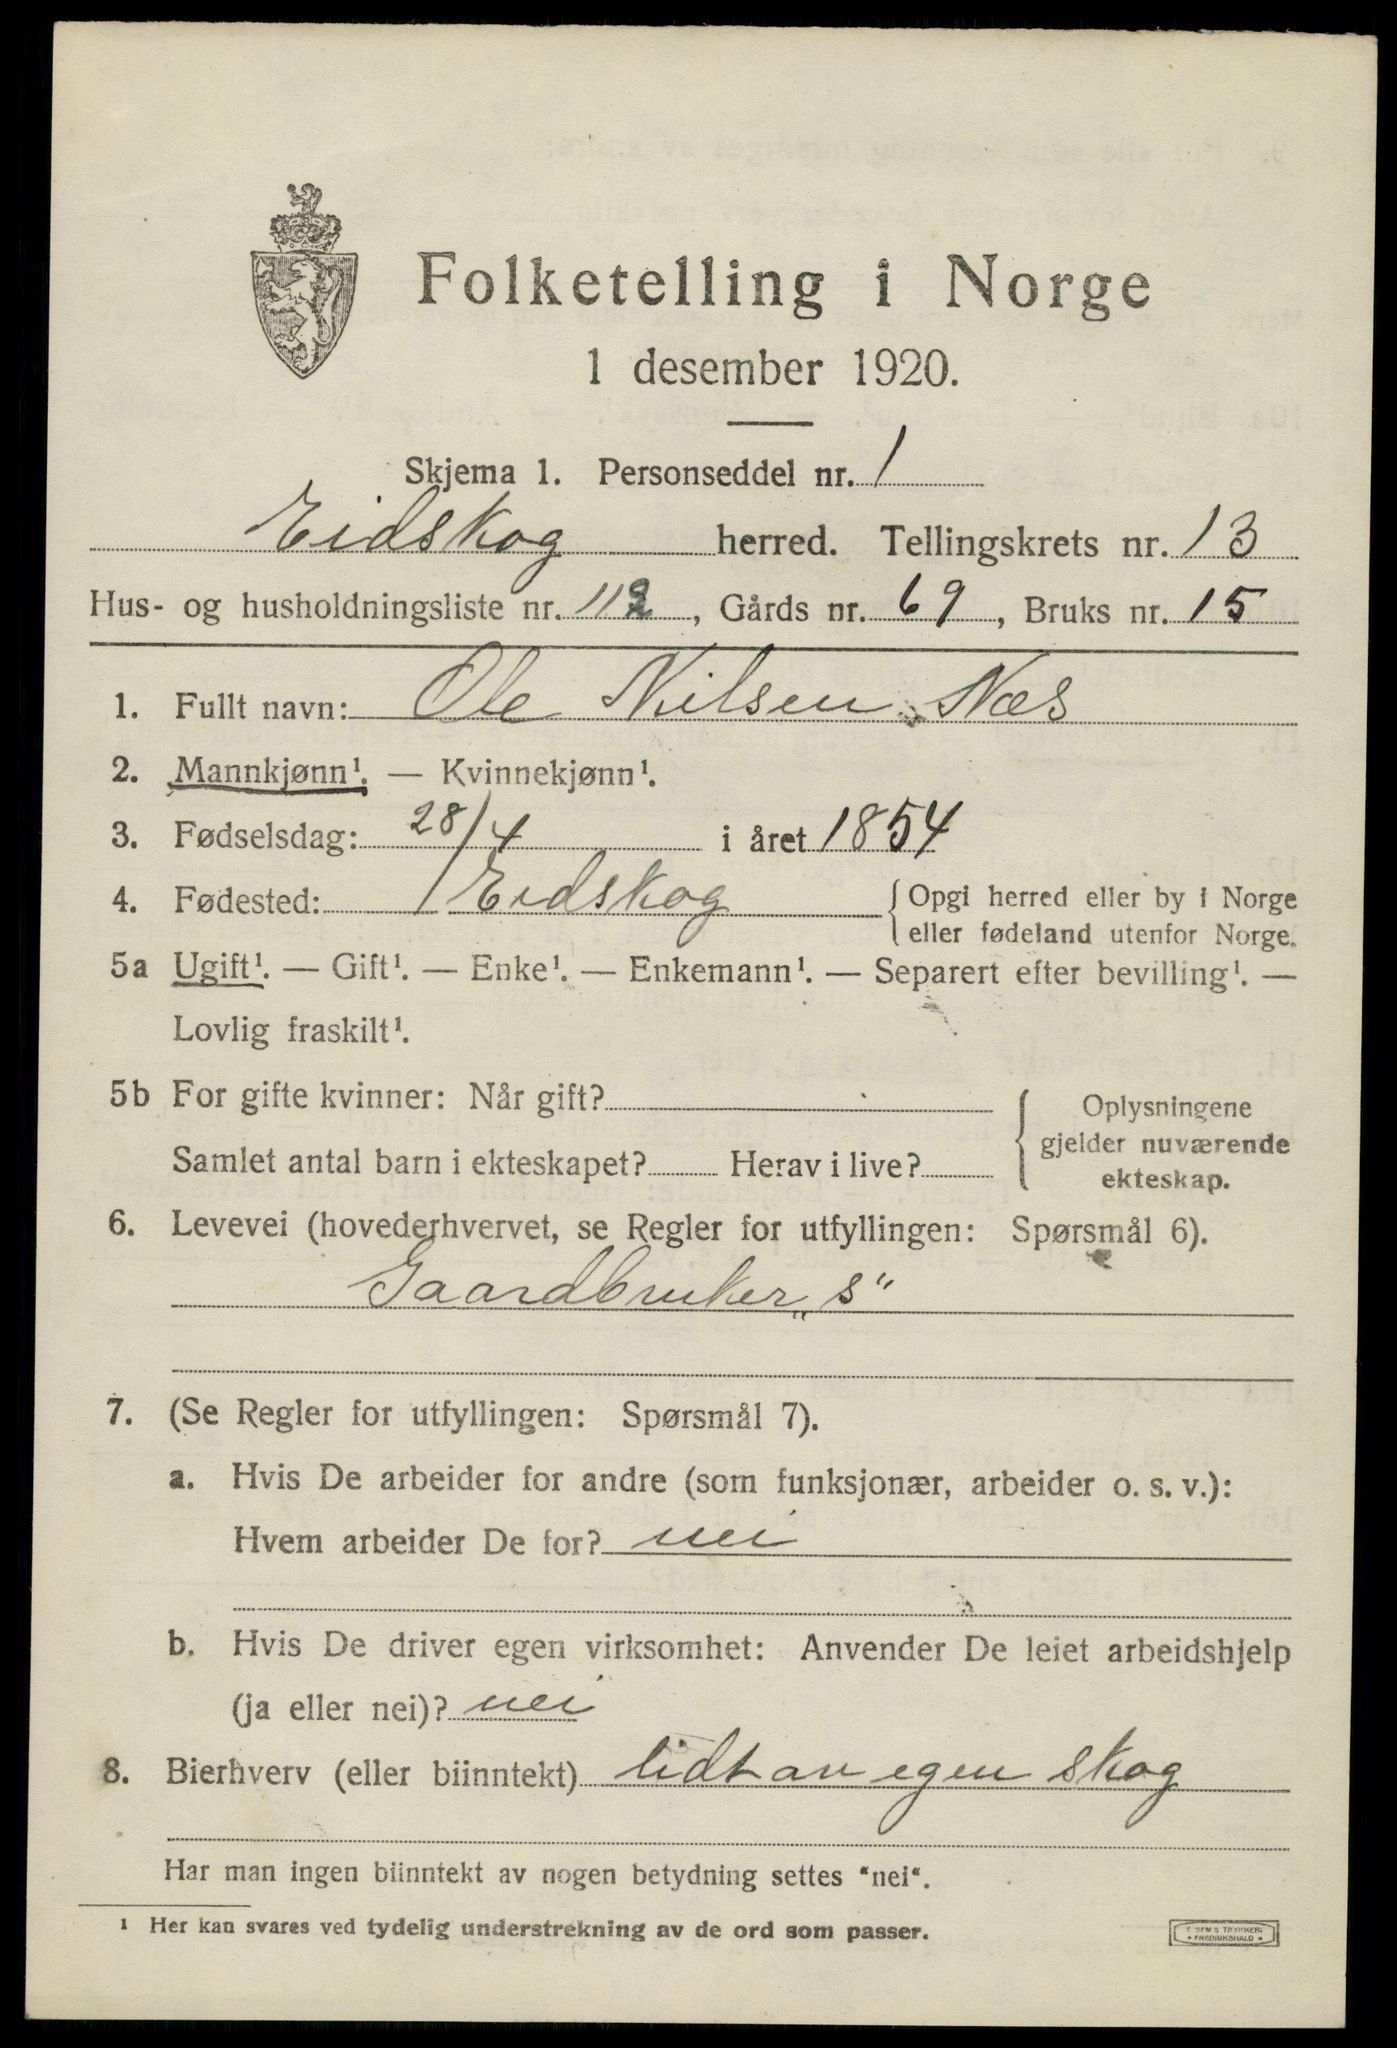 Folketelling i Norge
1 desember 1920.
Skjema 1. Personseddel nr. 1
Eidskog herred. Tellingskrets nr. 13
Hus- og husholdningsliste nr. 112, Gårds nr. 69, Bruks nr. 15
1. Fullt navn: Ole Nilsen Næs
2. Mannkjønn¹. — Kvinnekjønn¹.
3. Fødselsdag: 28/4 i året 1854
4. Fødested: Eidskog { Opgi herred eller by i Norge
eller fødeland utenfor Norge.
5a Ugift¹. — Gift¹. — Enke¹. — Enkemann¹. — Separert efter bevilling¹. —
Lovlig fraskilt¹.
5b For gifte kvinner: Når gift?
Samlet antal barn i ekteskapet? Herav i live?
Oplysningene
gjelder nuværende
ekteskap.
6. Levevei (hovederhvervet, se Regler for utfyllingen: Spørsmål 6).
Gaardbruker „s“
7. (Se Regler for utfyllingen: Spørsmål 7).
a. Hvis De arbeider for andre (som funksjonær, arbeider o. s. v.):
Hvem arbeider De for? nei
b. Hvis De driver egen virksomhet: Anvender De leiet arbeidshjelp
(ja eller nei)? nei
8. Bierhverv (eller biinntekt) lidt av egen skog
Har man ingen biinntekt av nogen betydning settes "nei".
¹ Her kan svares ved tydelig understrekning av de ord som passer.
FREDRIKSHALD